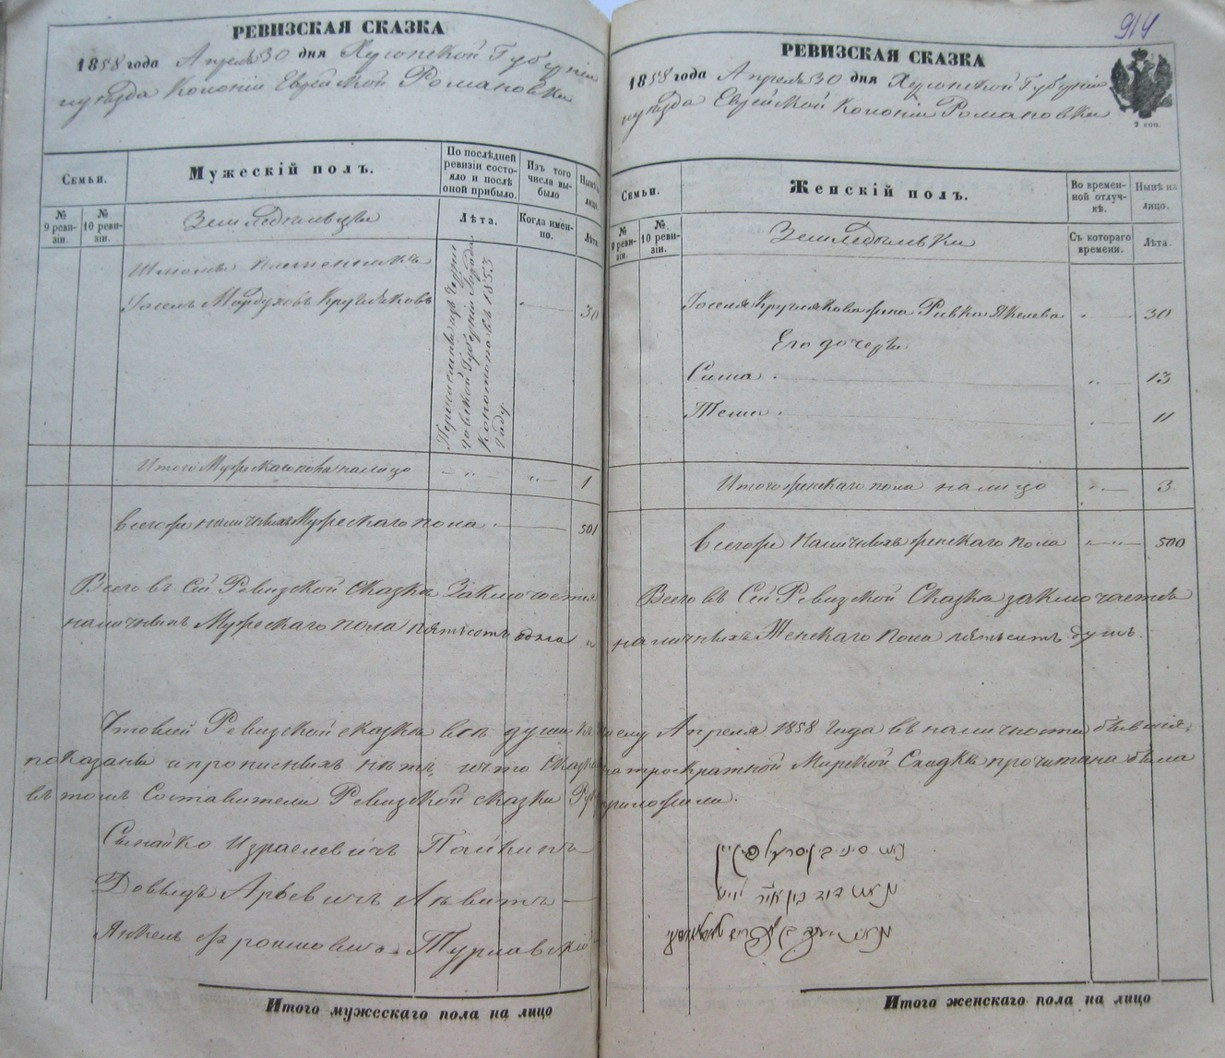 РЕВИЗСКАЯ СКАЗКА
1858 года Апреля 30 дня Херсонской Губерніи
и уезда Колоніи Еврейской Романовки
Семьи.
Мужескій полъ.
По послѣдней ревизіи состояло и послѣ оной прибыло.
Изъ того числа выбыло
Нынѣ на лицо.
№ 9 ревизіи.
№ 10 ревизіи.
Земледельцы
Лѣта.
Когда именно.
Лѣта.
Іосель Мордуховъ Кругляковъ
30
Перечисленъ изъ Черниговской Губерніи Города Конотопа въ 1853 Году.
Итого Мужескаго пола налицо
1
Всего же наличныхъ Мужескаго пола
501
Всего въ Сей Ревизской Сказкѣ Заключается
наличныхъ Мужескаго пола пятьсотъ одна и
Что въ сей Ревизской сказкѣ всѣ души
показаны и прописныхъ нѣтъ, и что Сказка
въ томъ Составители Ревизской сказки
Израелевичъ
Довидъ Арьевичъ
Янкель
Итого мужескаго пола на лицо
914
РЕВИЗСКАЯ СКАЗКА
1858 года Апреля 30 дня Херсонской Губерніи
и уезда Еврейской Колоніи Романовки
Семьи.
Женскій полъ.
Во временной отлучкѣ.
Нынѣ на лицо.
№ 9 ревизіи.
№ 10 ревизіи.
Земледельки
Съ котораго времени.
Лѣта.
Іоселя Круглякова жена Ривка Янкелева
30
Его дочери
Сима
13
Тема
11
Итого женскаго пола налицо
3
Всего же Наличныхъ женскаго пола
500
Всего въ Сей Ревизской Сказкѣ заключается
наличныхъ Женскаго пола пятьсотъ душъ.
Апреля 1858 Года въ наличности бывшія,
на трократной Мирской Сходкѣ прочитана была
приложили.
Итого женскаго пола на лицо